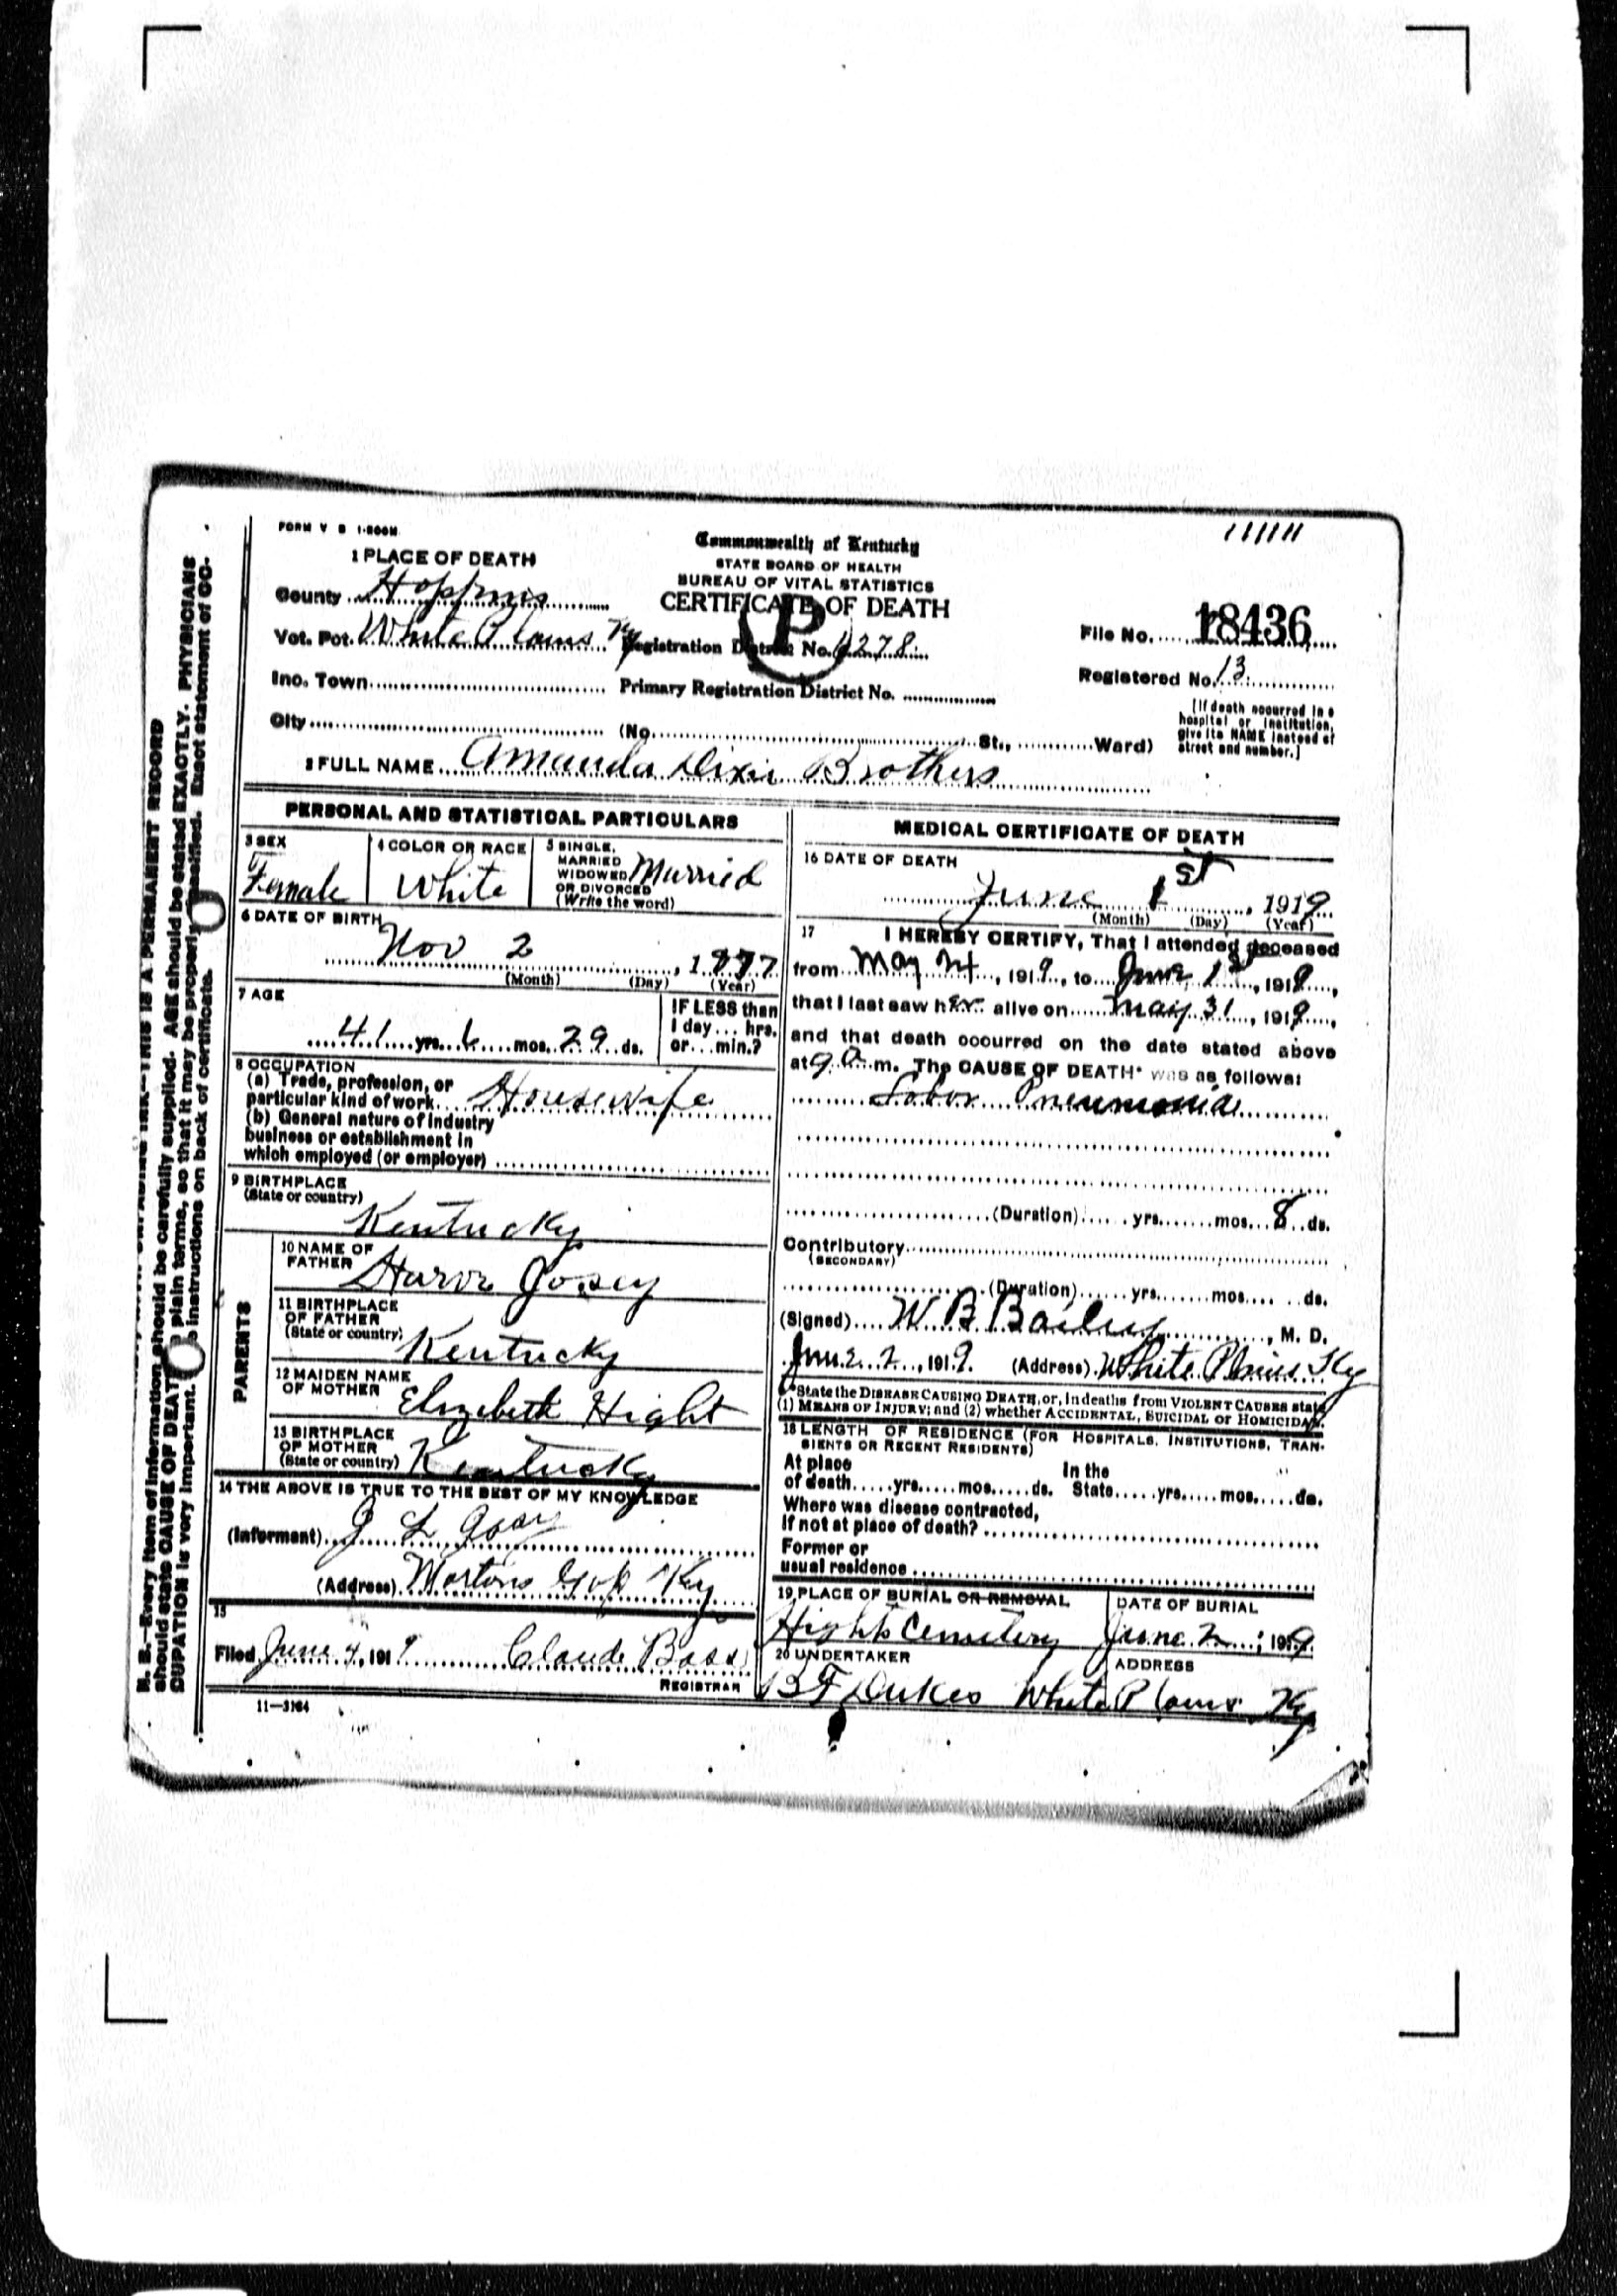 FORM V S 1-500M
111111
1 PLACE OF DEATH
Commonwealth of Kentucky
STATE BOARD OF HEALTH
BUREAU OF VITAL STATISTICS
CERTIFICATE OF DEATH
P
County Hopkins
Vot. Pct. White Plains Ky Registration District No. 1278
File No. 18436
Inc. Town Primary Registration District No.
Registered No. 13
City (No. St., Ward)
[If death occurred in a hospital or institution, give its NAME instead of street and number.]
2 FULL NAME Amanda Dixie Brothers
PERSONAL AND STATISTICAL PARTICULARS
3 SEX Female
4 COLOR OR RACE White
5 SINGLE, MARRIED WIDOWED OR DIVORCED (Write the word) Married
6 DATE OF BIRTH
Nov 2, 1877
(Month) (Day) (Year)
7 AGE
41 yrs. 6 mos. 29 ds.
IF LESS than 1 day... hrs. or... min.?
8 OCCUPATION
(a) Trade, profession, or
particular kind of work Housewife
(b) General nature of industry
business or establishment in
which employed (or employer)
9 BIRTHPLACE
(State or country)
Kentucky
PARENTS
10 NAME OF FATHER
11 BIRTHPLACE OF FATHER (State or country) Kentucky
12 MAIDEN NAME OF MOTHER Elizabeth Hight
13 BIRTHPLACE OF MOTHER (State or country) Kentucky
14 THE ABOVE IS TRUE TO THE BEST OF MY KNOWLEDGE
(Informant) J L
(Address) Mortons Gap Ky
15
Filed June 4, 1919 Claude Bass
REGISTRAR
11-3184
MEDICAL CERTIFICATE OF DEATH
16 DATE OF DEATH
June 1st, 1919
(Month) (Day) (Year)
17 I HEREBY CERTIFY, That I attended deceased
from May 24, 1919, to June 1st, 1919,
that I last saw her alive on May 31, 1919,
and that death occurred on the date stated above
at 9 a m. The CAUSE OF DEATH* was as follows:
Lobar Pneumonia
(Duration) yrs. mos. 8 ds.
Contributory
(SECONDARY)
(Duration) yrs. mos. ds.
(Signed) W B Bailey, M. D.
June 2, 1919. (Address) White Plains Ky
*State the DISEASE CAUSING DEATH, or, in deaths from VIOLENT CAUSES state
(1) MEANS OF INJURY; and (2) whether ACCIDENTAL, SUICIDAL or HOMICIDAL.
18 LENGTH OF RESIDENCE (FOR HOSPITALS, INSTITUTIONS, TRAN-
SIENTS OR RECENT RESIDENTS)
At place of death yrs. mos. ds. In the State yrs. mos. ds.
Where was disease contracted,
If not at place of death?
Former or
usual residence
19 PLACE OF BURIAL OR REMOVAL
Hights Cemetery
DATE OF BURIAL
June 2, 1919
20 UNDERTAKER
B F Dukes
ADDRESS
White Plains Ky
THIS IS A PERMANENT RECORD
N. B.—Every item of information should be carefully supplied. AGE should be stated EXACTLY. PHYSICIANS
should state CAUSE OF DEATH in plain terms, so that it may be properly classified. Exact statement of OC-
CUPATION is very important. See instructions on back of certificate.